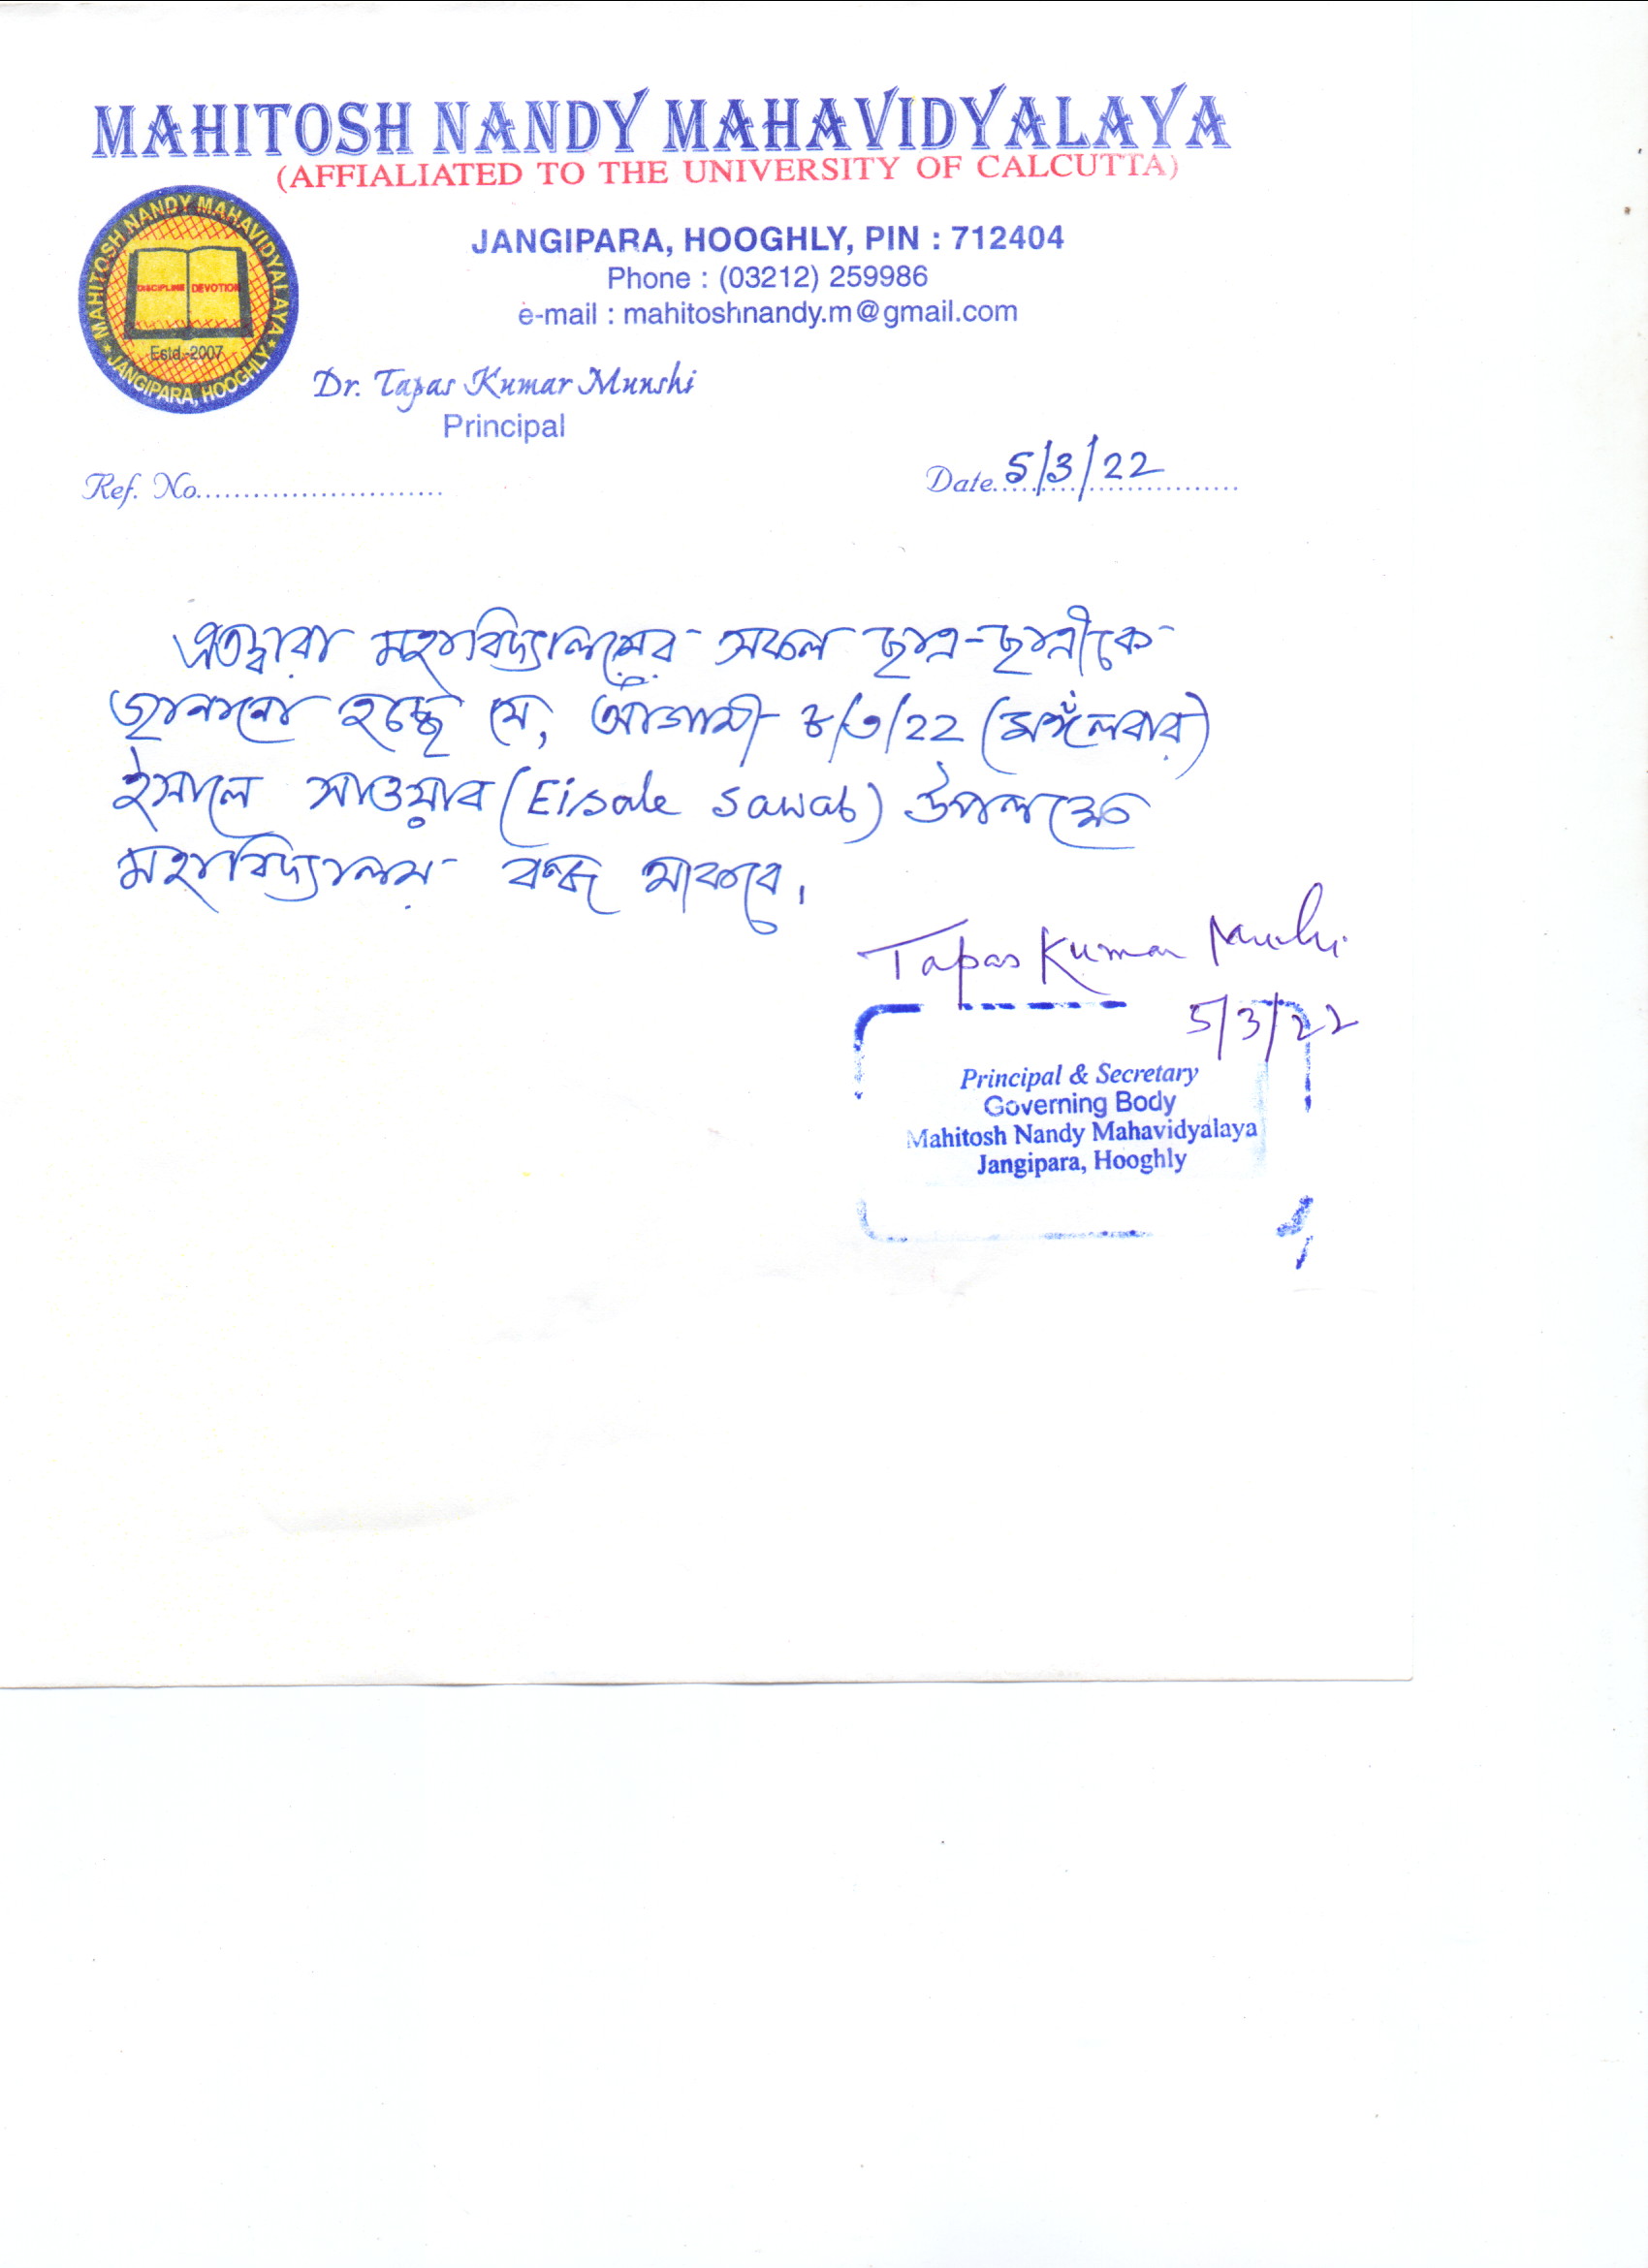 MAHITOSH NANDY MAHAVIDYALAYA
(AFFIALIATED TO THE UNIVERSITY OF CALCUTTA)
MAHITOSH NANDY MAHAVIDYALAYA
DISCIPLINE DEVOTION
Estd.-2007
JANGIPARA, HOOGHLY
JANGIPARA, HOOGHLY, PIN : 712404
Phone : (03212) 259986
e-mail : mahitoshnandy.m@gmail.com
Dr. Tapas Kumar Munshi
Principal
Ref. No..........................
Date. 5/3/22
এতদ্বারা মহাবিদ্যালয়ের সকল ছাত্র-ছাত্রীকে
জানানো হচ্ছে যে, আগামী ৮/৩/22 (মঙ্গলবার)
ইসালে সাওয়াব (Eisale Sawab) উপলক্ষে
মহাবিদ্যালয় বন্ধ থাকবে।
Tapas Kumar Munshi
5/3/22
Principal & Secretary
Governing Body
Mahitosh Nandy Mahavidyalaya
Jangipara, Hooghly